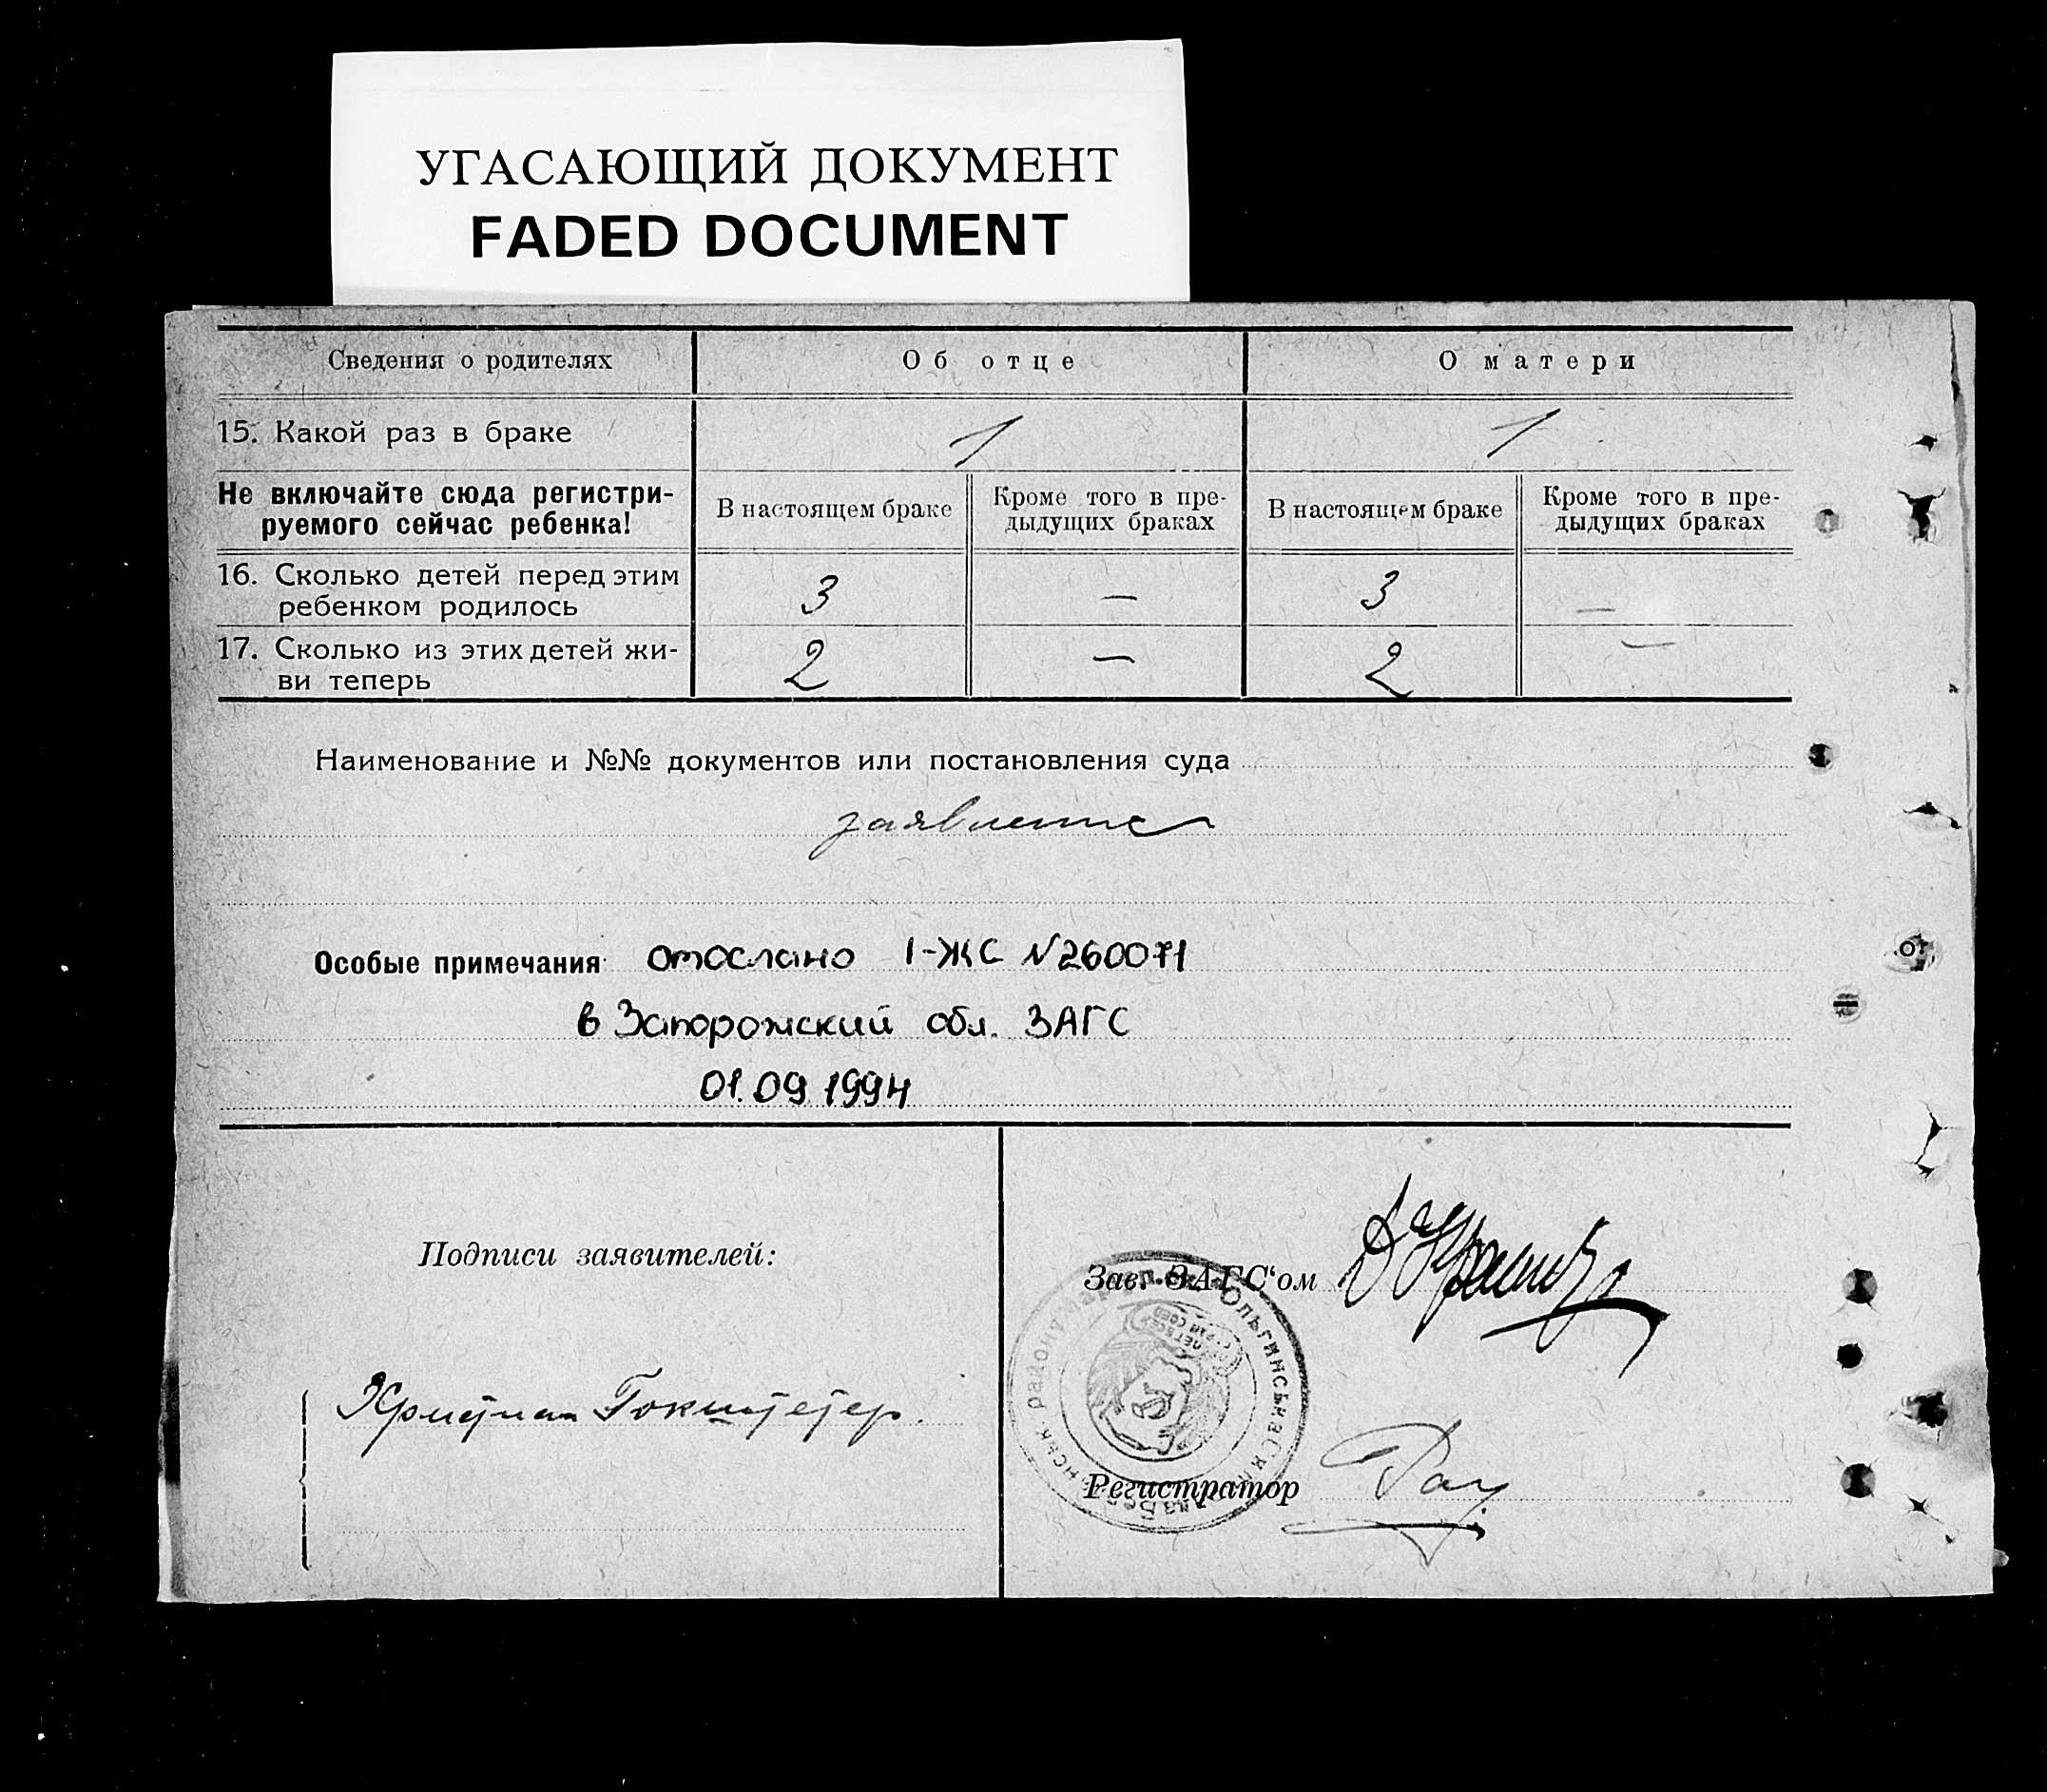 УГАСАЮЩИЙ ДОКУМЕНТ
FADED DOCUMENT
Сведения о родителях Об отце О матери
15. Какой раз в браке 1 1
Не включайте сюда регистри-
руемого сейчас ребенка!
В настоящем браке
Кроме того в пре-
дыдущих браках
В настоящем браке
Кроме того в пре-
дыдущих браках
16. Сколько детей перед этим
ребенком родилось
3 — 3 —
17. Сколько из этих детей жи-
ви теперь
2 — 2 —
Наименование и №№ документов или постановления суда
заявление
Особые примечания отослано I-ЖС N260071
в Запорожский обл. ЗАГС
01.09.1994
Подписи заявителей:
Зав. ЗАГС'ом
Регистратор
Ольгинська